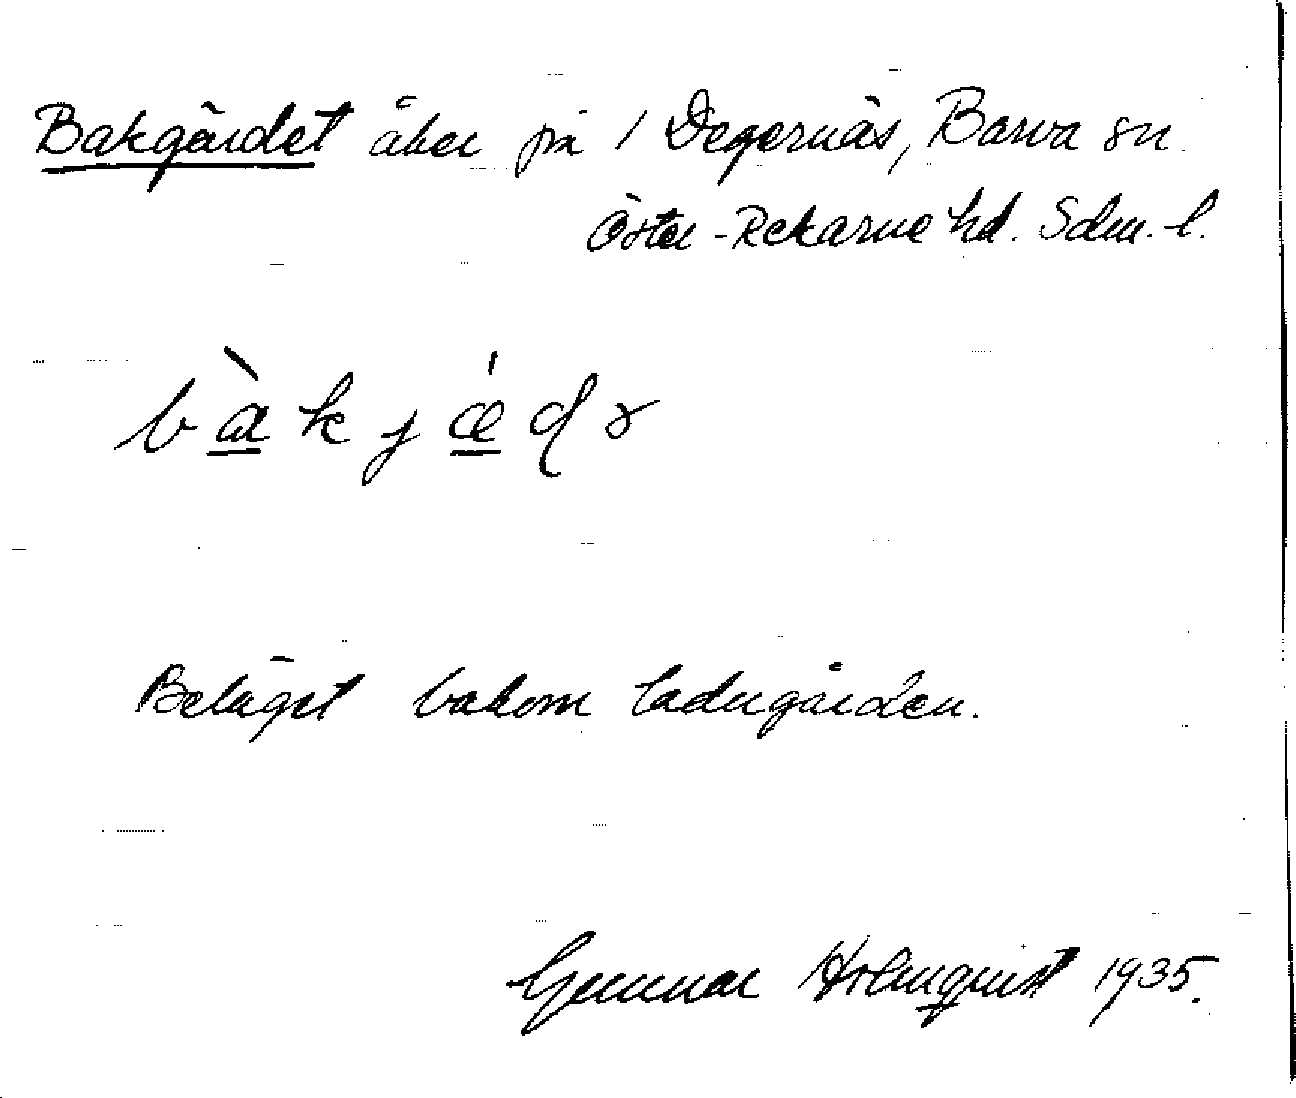 Bakgärdet åker på 1 Degernäs, Barva sn
Öster-Rekarne hd. Sdm. l.
bàkjæ̍dɤ
Beläget bakom ladugården.
Gunnar Holmquist 1935.